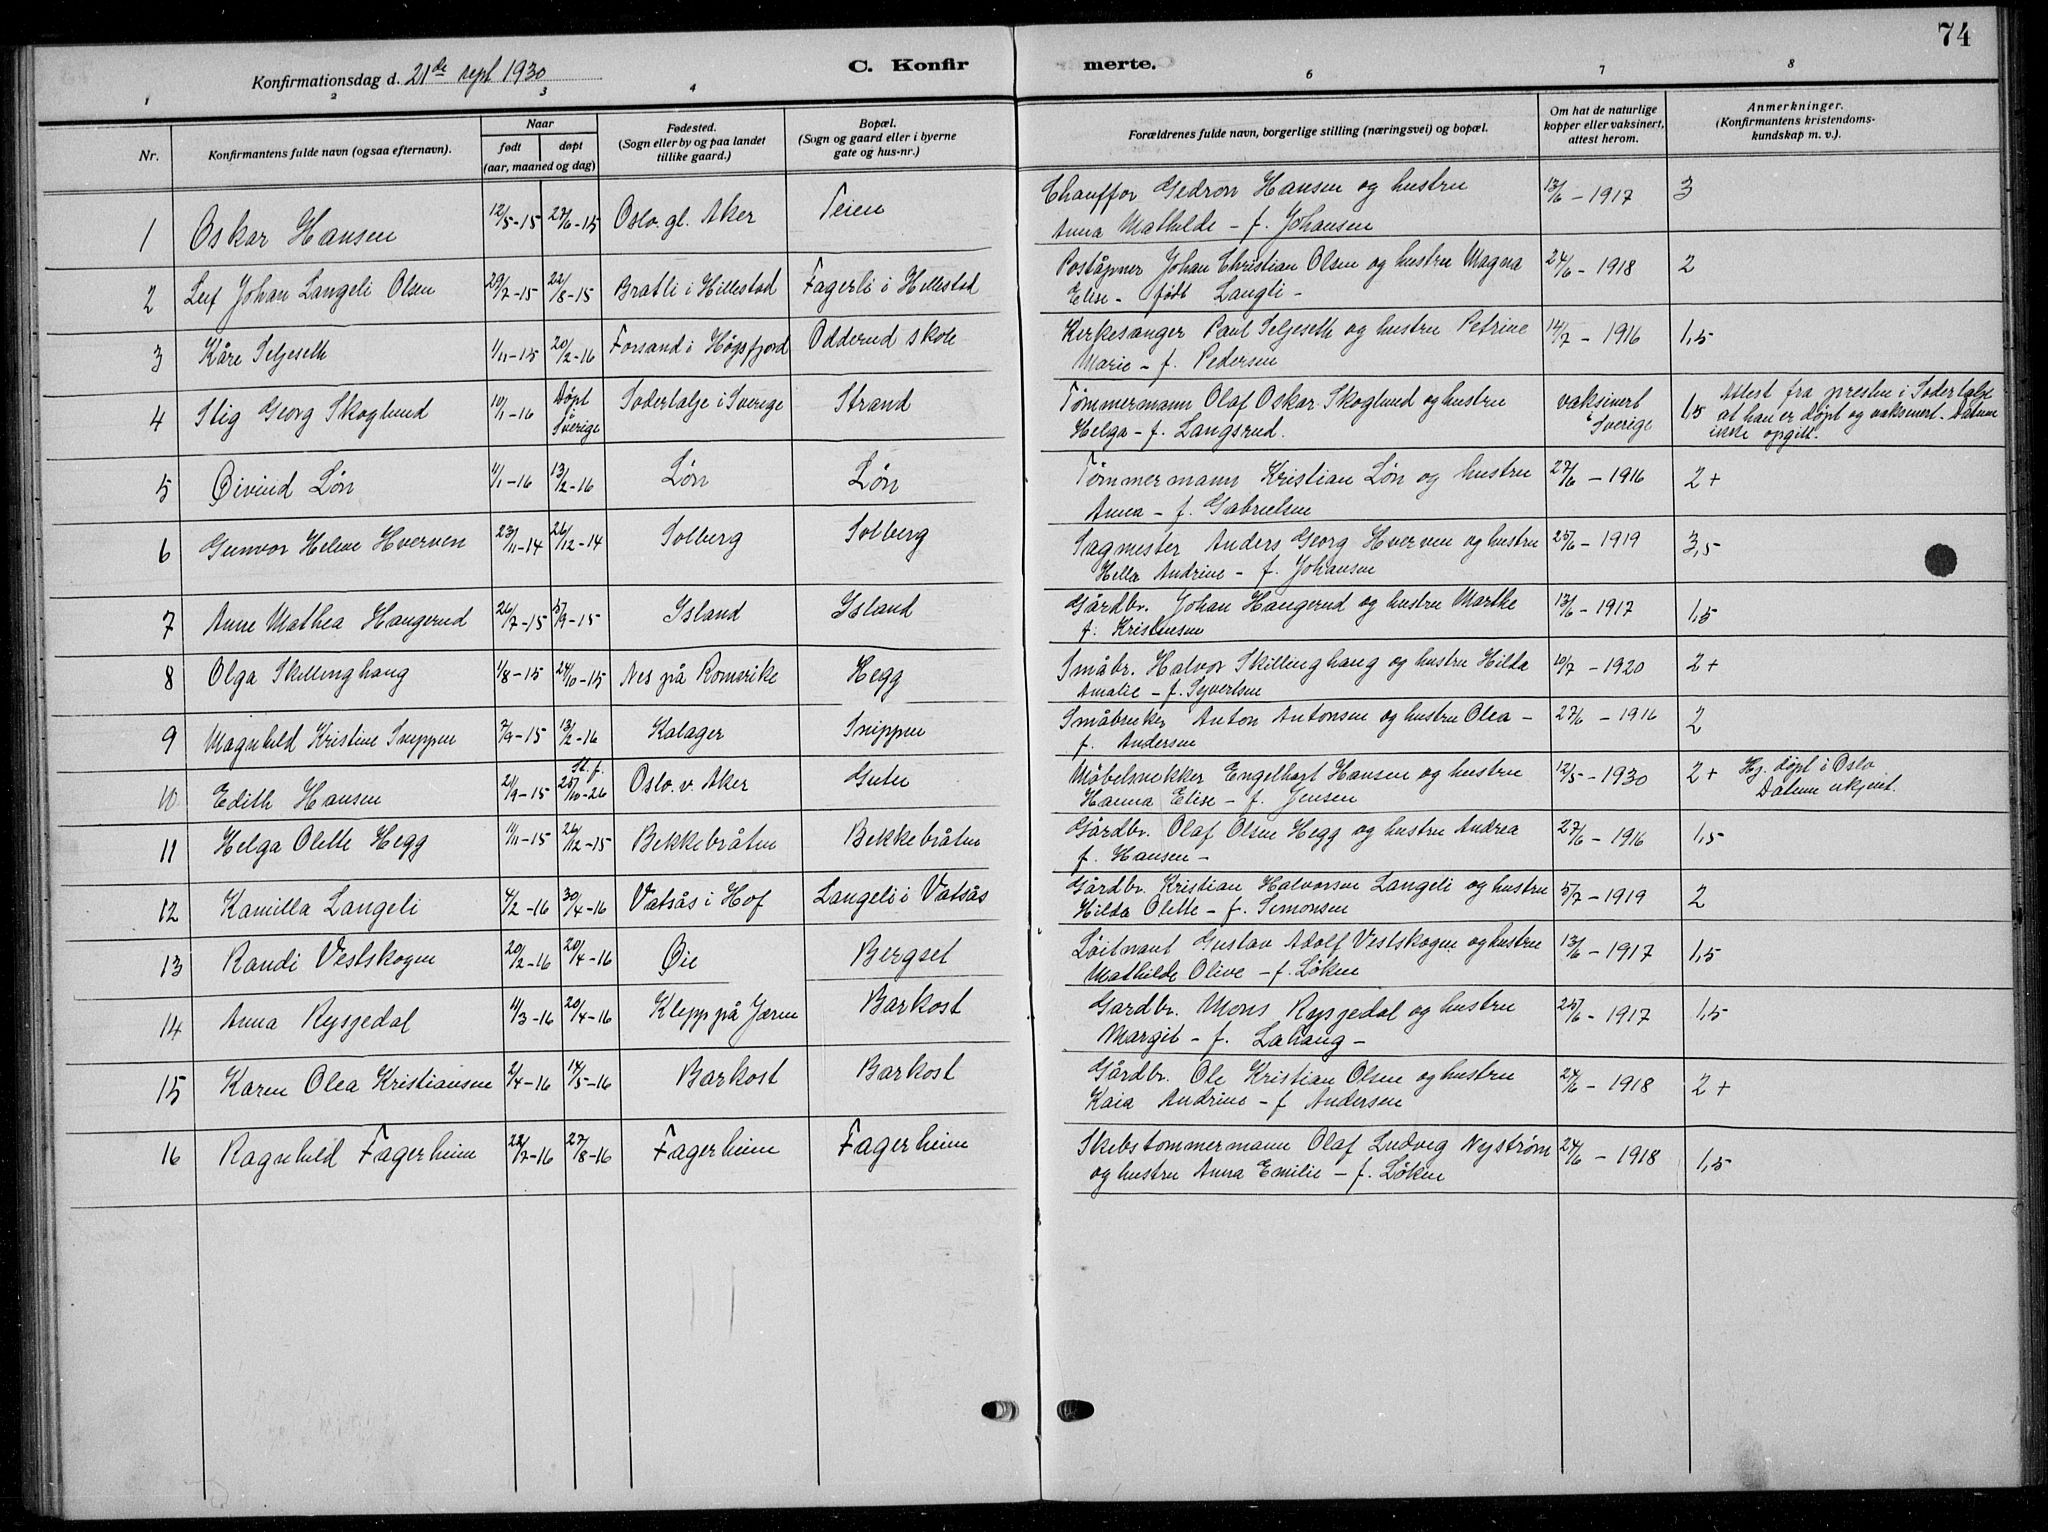 74
Konfirmationsdag d. 21de sept 1930
C. Konfir
merte.
1 2 3 4 6 7 8
Nr.
Konfirmantens fulde navn (ogsaa efternavn).
Naar
født døpt
(aar, maaned og dag)
Fødested.
(Sogn eller by og paa landet
tillike gaard.)
Bopæl.
(Sogn og gaard eller i byerne
gate og hus-nr.)
Forældrenes fulde navn, borgerlige stilling (næringsvei) og bopæl.
Om hat de naturlige
kopper eller vaksinert,
attest herom.
Anmerkninger.
(Konfirmantens kristendoms-
kundskap m. v.).
1 Oskar Hansen 12/5-15 27/6-15 Oslo. gl. Aker Teien Chauffør Hansen og hustru 13/6 - 1917 3
Anna Mathilde - f. Johansen
2 Leif Johan Langeli Olsen 29/7-15 22/8-15 Bratli i Hillestad Fagerli i Hillestad Poståpner Johan Christian Olsen og hustru Magna 24/6 - 1918 2
Elise - født Langli -
3 Kåre Seljeseth 1/11-15 20/2-16 Forsand i Høgsfjord Odderud skole Kirkesanger Paul Seljeseth og hustru Petrine 14/7 - 1916 1,5
Marie - f. Pedersen
4 Stig Georg Skoglund 10/1-16 Døpt i Sverige Sødertalje i Sverige Strand Tømmermann Olaf Oskar Skoglund og hustru vaksinert i Sverige 1,5 Attest fra presten i Sødertalje
Helga - f. Langsrud. at han er døpt og vaksinert. Datum
ikke opgitt.
5 Øivind Løn 11/1-16 13/2-16 Løn Løn Tømmermann Kristian Løn og hustru 27/6 - 1916 2+
Anna - f. Gabrielsen
6 Gunvor Helene Hverven 23/11-14 26/12-14 Solberg Solberg Sagmester Anders Georg Hverven og hustru 25/6 - 1919 3,5
Hella Andrine - f. Johansen
7 Anne Mathea Haugerud 26/7-15 5/9-15 Island Island Gårdbr. Johan Haugerud og hustru Marthe 13/6 - 1917 1,5
f. Kristensen
8 Olga Skillinghaug 1/8-15 24/10-15 Nes på Romerike Hegg Småbr. Halvor Skillinghaug og hustru Hilda 10/7 - 1920 2+
Amalie - f. Syvertsen
9 Magnhild Kristine Snippen 7/9-15 13/2-16 Kalager Snippen Småbruker Anton Antonsen og hustru Olea - 27/6 - 1916 2
f. Andersen
10 Edith Hansen 21/9-15 St. f. 25/10-26 Oslo. v. Aker Guten Møbelsnekker Engelhart Hansen og hustru 12/5 - 1930 2+ Hj. døpt i Oslo
Hanna Elise - f. Jensen Datum ukjent.
11 Helga Olette Hegg 11/11-15 26/12-15 Bekkebråten Bekkebråten Gårdbr. Olaf Olsen Hegg og hustru Andrea 27/6 - 1916 1,5
f. Hansen -
12 Kamilla Langeli 4/2-16 30/4-16 Vatsås i Hof Langeli i Vatsås Gårdbr. Kristian Halvorsen Langeli og hustru 5/7 - 1919 2
Hilda Olette - f. Simonsen
13 Randi Vestskogen 20/2-16 20/4-16 Øie Bergset Løitnant Gustav Adolf Vestskogen og hustru 13/6 - 1917 1,5
Mathilde Olive - f. Løken
14 Anna Rysjedal 11/3-16 20/4-16 Klepp på Jæren Barkost Gardbr. Mons Rysjedal og hustru 25/6 - 1917 1,5
Margit - f. Lahaug -
15 Karen Olea Kristiansen 2/4-16 14/5-16 Barkost Barkost Gårdbr. Ole Kristian Olsen og hustru 24/6 - 1918 2+
Kaia Andrine - f Andersen
16 Ragnhild Fagerheim 22/7-16 27/8-16 Fagerheim Fagerheim Skibstømmermann Olaf Ludvig Nystrøm 24/6 - 1918 1,5
og hustru Anna Emilie - f. Løken